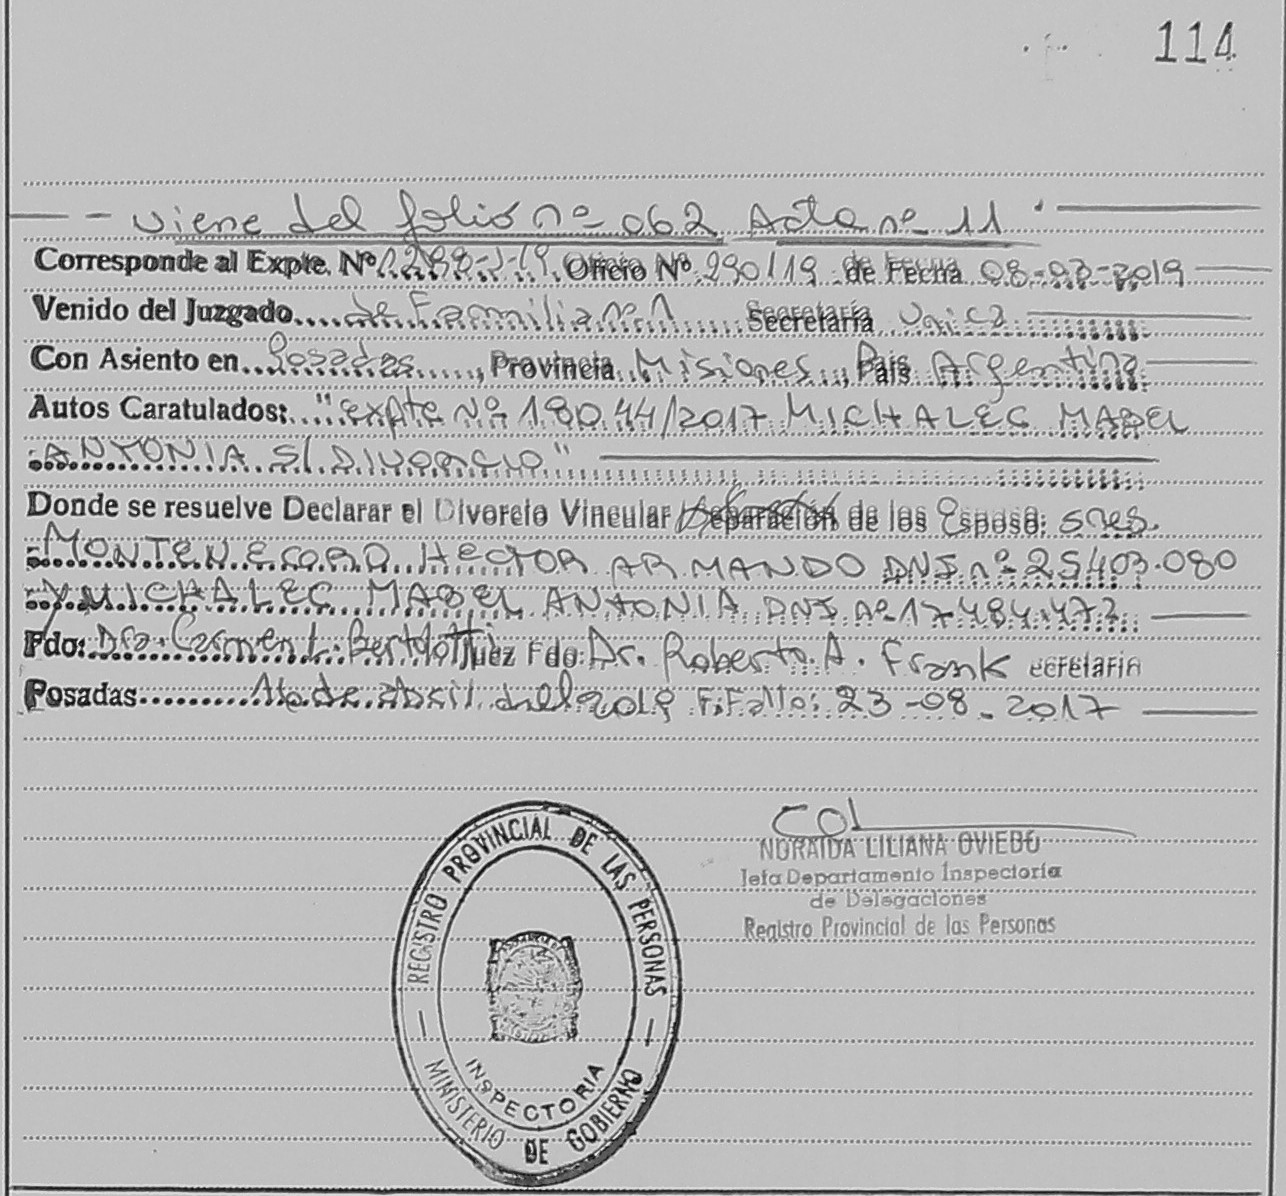 114
- Viene del folio nº 062 Acta nº 11
Corresponde al Expte. Nº 1288-J-19 Oficio Nº 290/19 de Fecha 08-03-2019
Venido del Juzgado de Familia nº 1 Secretaría Unica
Con Asiento en Posadas, Provincia Misiones, País Argentina
Autos Caratulados: "expte Nº 18044/2017 MICHALEC MABEL
ANTONIA S/ DIVORCIO"
Donde se resuelve Declarar el Divorcio Vincular Separación de los Esposo: sres.
MONTENEGRO HECTOR ARMANDO DNI nº 25403.080
Y MICHALEC MABEL ANTONIA DNI nº 17.484.473
Fdo: Dra. Carmen L. Bertolotti Juez Fdo: Dr. Roberto A. Frank ecretario
Posadas 16 de abril del 2019 F.Fallo: 23-08-2017
NORAIDA LILIANA OVIEDO
Jefa Departamento Inspectoría
de Delegaciones
Registro Provincial de las Personas
REGISTRO PROVINCIAL DE LAS PERSONAS
INSPECTORIA
MINISTERIO DE GOBIERNO